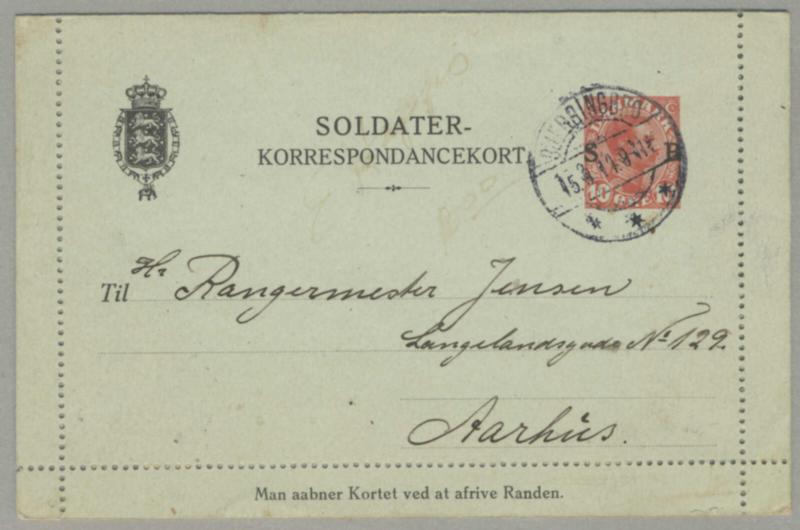 SOLDATER-
KORRESPONDANCEKORT
BJERRINGBRO
S B
10 ØRE
Til Hr Rangermester Jensen
Langelandsgade No 129.
Aarhus.
Man aabner Kortet ved at afrive Randen.